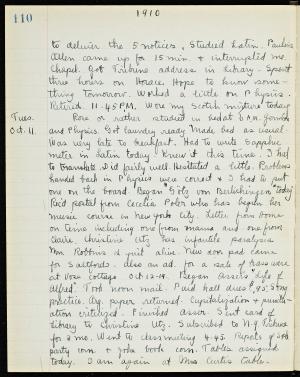 110
1910
to deliver the 5 notices, Studied Latin. Pauline
Allen came up for 15 min. & interrupted me.
Chapel. Got Tribune address in library. Spent
three hours on Horace. Hope to know some-
thing tomorrow. Worked a little on Physics.
Retired 11.45 P.M. Wore my Scotch mixture today
Tues.
Oct. 11.
Rose or rather studied in bed at 6 A.M.
and Physics. Got laundry ready. Made bed as usual.
Was very late to breakfast. Had to write Sapphic
meter in Latin today. Knew it this time. I had
to translate. Did fairly well. Hesitated a little. Robbins
handed back in Physics were correct & I had to put
one on the board. Began "Götz von Berlichingen" today
Rec'd postal from Cecelia Poler who has begun her
music course in New York city. Letter from home
on time including one from mama and one from
Claire. Christine Utz has infantile paralysis
Wm Robbins is quite alive. New son paid came
for Saltfords. Also an ad. for a sale of glassware
at Vose Cottage Oct 12-14. Began Asser's "Life of
Alfred". Took noon mail. Paid hall dues $.95. Story
practice. Arg. paper returned. Capitalization & punctu-
ation criticized. Finished Asser. Sent card of
library to Christine Utz. Subscribed to N.Y. Tribune
for 2 mo. Went to class meeting 4.45. Reports of Soph
party com & joke book com. Tables assigned
today. I am again at Miss Curtis' table.